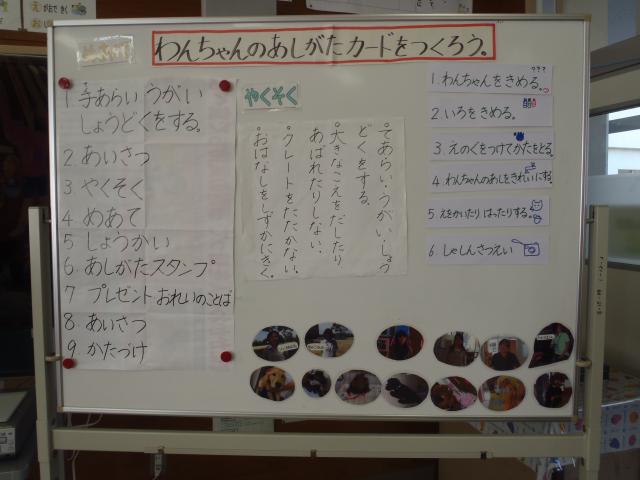 わんちゃんのあしがたカードをつくろう。
1 手あらい うがい
しょうどくをする。
2 あいさつ
3 やくそく
4 めあて
5 しょうかい
6. あしがたスタンプ
7 プレゼント おれいのことば
8. あいさつ
9. かたづけ
やくそく
。てあらい・うがい・しょう
どくをする。
。大きなこえをだしたり、
あばれたりしない。
。クレートをたたかない。
。おはなしをしずかにきく。
1. わんちゃんをきめる。
2. いろをきめる。
3. えのぐをつけてかたをとる。
4. わんちゃんのあしをきれいにする。
5. えをかいたり はったりする。
6. しゃしんさつえい